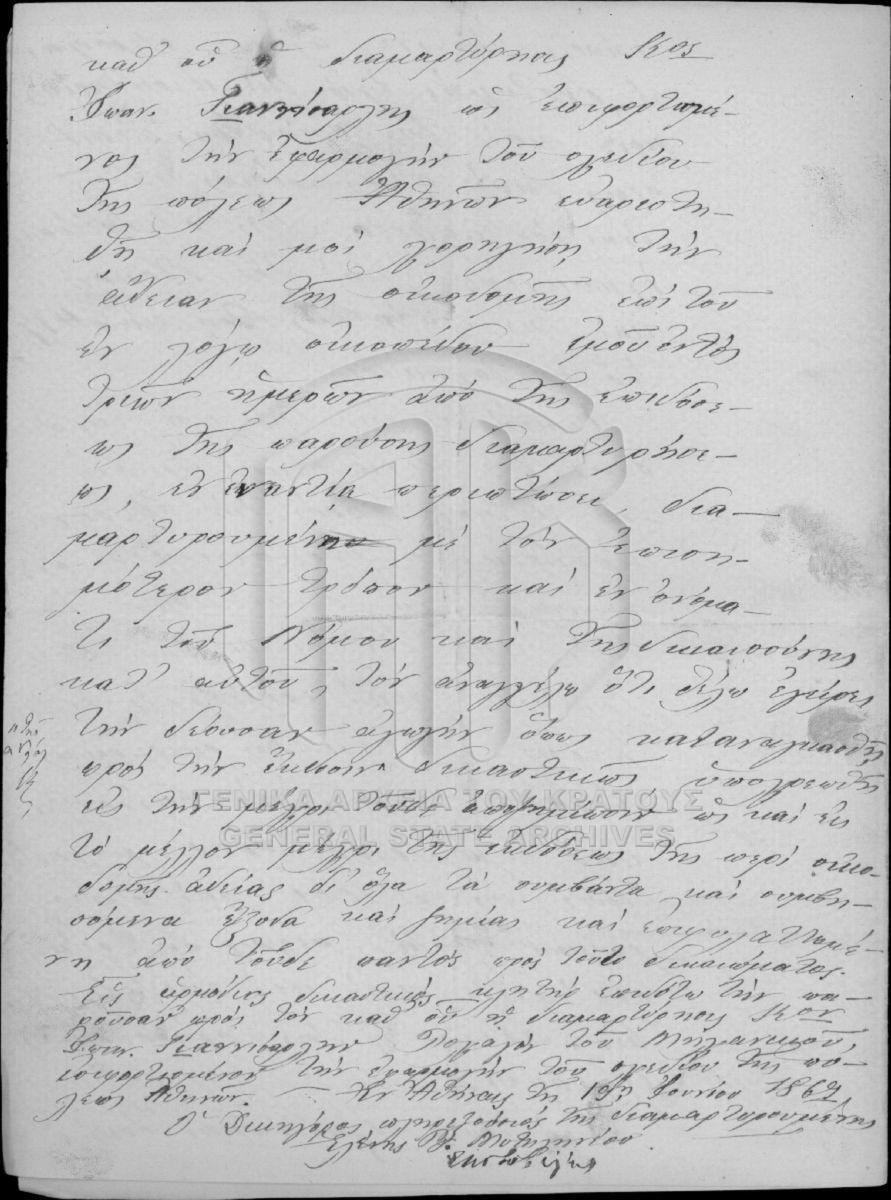 καθ' οὗ ἡ διαμαρτύρησις Κος
Ἰωαν. Γιαννίσαρλης ὡς ἐπιφορτισμέ-
νος τὴν ἐφαρμογὴν τοῦ σχεδίου
τῆς πόλεως Ἀθηνῶν εὐαρεστη-
θῇ καὶ μοὶ χορηγήσῃ τὴν
ἄδειαν τῆς οἰκοδομῆς ἐπὶ τοῦ
ἐν λόγῳ οἰκοπέδου ἐμοῦ ἐντὸς
τριῶν ἡμερῶν ἀπὸ τῆς ἐπιδόσε-
ως τῆς παρούσης διαμαρτυρήσε-
ως, ἐν ἐναντίᾳ περιπτώσει, δια-
μαρτυρουμένη μὲ τὸν ἐπιση-
μότερον τρόπον καὶ ἐν ὀνόμα-
τι τοῦ Νόμου καὶ τῆς δικαιοσύνης
κατ' αὐτοῦ, τὸν ἀναγγέλω ὅτι θέλω ἐγείρει
τὴν δέουσαν ἀγωγὴν ὅπως καταναγκασθῇ
πρὸς τὴν ἔκδοσιν δικαστικῶς ὑποχρεωθῇ
εἰς τὴν μέχρι τοῦδε ἀποζημίωσιν ὡς καὶ εἰς
τὸ μέλλον μέχρι τῆς ἐκδόσεως τῆς περὶ οἰκο-
δομῆς ἀδείας δι' ὅλα τὰ συμβάντα καὶ συμβη-
σόμενα ἔξοδα καὶ ζημίας καὶ ἐπιφυλαττομέ-
νη ἀπὸ τοῦδε παντὸς πρὸς τοῦτο δικαιώματος.
Εἷς ἁρμόδιος δικαστικὸς κλητὴρ ἐπιδότω τὴν πα-
ροῦσαν πρὸς τὸν καθ' οὗ ἡ διαμαρτύρησις Κον
Ἰωαν. Γιαννίσαρλην Λοχαγὸν τοῦ Μηχανικοῦ,
ἐπιφορτισμένον τὴν ἐφαρμογὴν τοῦ σχεδίου τῆς πό-
λεως Ἀθηνῶν. Ἐν Ἀθήναις τῇ Ἰουνίου 1867
Ὁ Δικηγόρος πληρεξούσιος τῆς διαμαρτυρουμένης
Ἑλένης
ΓΕΝΙΚΑ ΑΡΧΕΙΑ ΤΟΥ ΚΡΑΤΟΥΣ
GENERAL STATE ARCHIVES